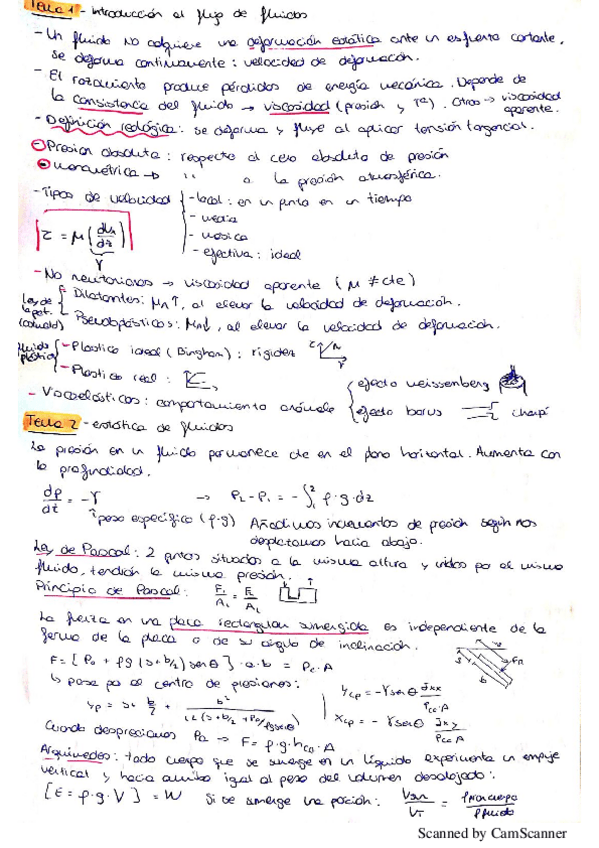 Tema 1 - Introducción al flujo de fluidos
- Un fluido NO adquiere una deformación estática ante un esfuerzo cortante,
se deforma continuamente : velocidad de deformación.
- El rozamiento produce pérdidas de energía mecánica. Depende de
la consistencia del fluido → viscosidad (presión y Tª). Otros → viscosidad
aparente.
- Definición reológica : se deforma y fluye al aplicar tensión tangencial.
- Presión absoluta : respecto al cero absoluto de presión
- Manométrica → " a la presión atmosférica.
- Tipos de velocidad
- local : en un punto en un tiempo
- media
- másica
- efectiva : ideal
τ = μ (du/dz)
γ
- No newtonianos → viscosidad aparente (μ ≠ cte)
Ley de la pot. (Ostwald)
Dilatantes : μa ↑, al elevar la velocidad de deformación.
Pseudoplásticos : μa ↓, al elevar la velocidad de deformación.
fluido plástico
- Plástico ideal (Bingham) : rigidez
- Plástico real :
- Viscoelásticos : comportamiento anómalo
efecto weissenberg
efecto barus
Tema 2 - estática de fluidos
La presión en un fluido permanece cte en el plano horizontal. Aumenta con
la profundidad.
dp/dt = -γ → P2 - P1 = - ∫₁² ρ·g·dz
peso específico (ρ·g) Añadimos incrementos de presión según nos
desplazamos hacia abajo.
Ley de Pascal : 2 puntos situados a la misma altura y unidos por el mismo
fluido, tendrán la misma presión.
Principio de Pascal : F1/A1 = F2/A2
La fuerza en una placa rectangular sumergida es independiente de la
forma de la placa o de su ángulo de inclinación.
F = [P0 + ρg (s + b/2) senθ] · a·b = Pc·A
↳ pasa por el centro de presiones :
yp = s + b/2 + b²/12 (s + b/2 + P0/ρgsenθ)
ycp = -γsenθ Ixx/Pcc·A
xcp = -γsenθ Ixy/Pcc·A
Cuando despreciamos Pa → F = ρ·g·hcg·A
Arquímedes : todo cuerpo que se sumerge en un líquido experimenta un empuje
vertical y hacia arriba igual al peso del volumen desalojado :
[E = ρ·g·V] = W Si se sumerge una porción :
Scanned by CamScanner